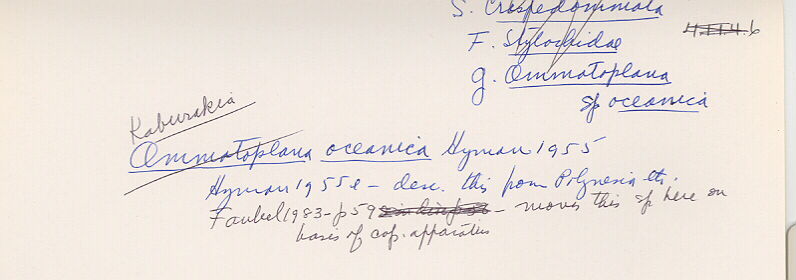 S. Craspedommata
4.11.4.6
F. Stylochidae
g. Ommatoplana
sp oceanica
Kaburakia
Ommatoplana oceanica Hyman 1955
Hyman 1955e - desc. this from Polynesia etc.
Faubel 1983 - p 59 - moves this sp here on
basis of cop. apparatus